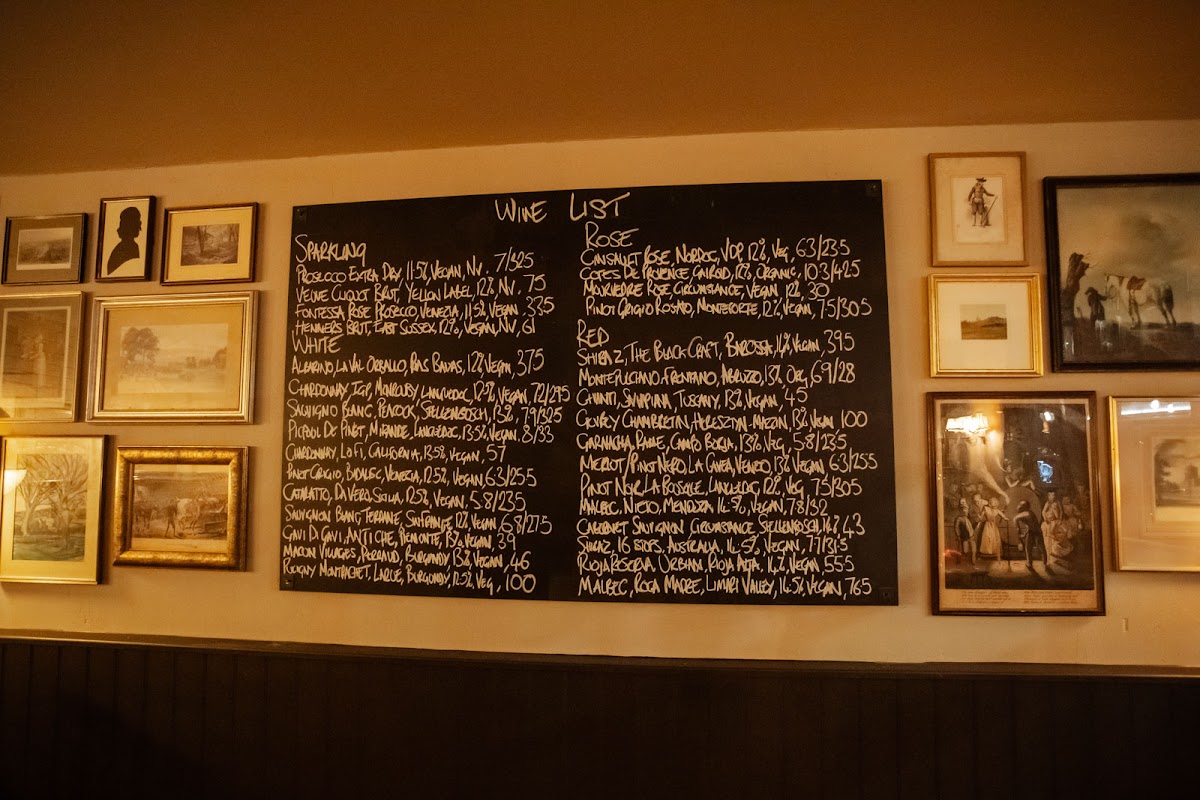 WINE LIST
SPARKLING
PROSECCO EXTRA DRY, 11.5%, VEGAN, NV. 7/325
VEUVE CLIQUOT BRUT, YELLOW LABEL, 12% NV. 75
FONTESSA ROSE PROSECCO, VENEZIA, 11.5%, VEGAN. 335
HENNERS BRUT, EAST SUSSEX, 12%, VEGAN, NV, 61
WHITE
ALBARINO, LA VAL ORBALLO, RIAS BAIXAS, 12% VEGAN, 375
CHARDONNAY IGP, LANGUEDOC, 12.5%, VEGAN, 72/295
SAUVIGNO BLANC, PEACOCK, STELLENBOSCH, 13%, 79/325
PICPOUL DE PINET, MIRANDE, LANGUEDOC, 13.5%, VEGAN. 8/33
CHARDONNAY, LO FI, CALIFORNIA, 13.5% VEGAN, 57
PINOT GRIGIO, BIDOLEC, VENEZIA, 12.5%, VEGAN, 63/255
CATARATTO, DA VERO, SICILIA, 12.5%, VEGAN, 58/235
SAUVIGNON BLANC, TERRANE, 12% VEGAN, 68/275
GAVI DI GAVI, ANTICHE, PIEMONTE, 13% VEGAN, 39
MACON VILLAGES, PERRAUD, BURGUNDY, 13%, VEGAN, 46
PULIGNY MONTRACHET, LARUE, BURGUNDY, 12.5%, VEG, 100
ROSE
CINSAULT ROSE, NORDOC, VDP, 12%, VEG, 63/235
COTES DE PROVENCE, GAIROID, 12%, ORGANIC, 103/425
MOURVEDRE ROSE CIRCUMSTANCE, VEGAN 12%, 30
PINOT GRIGIO ROSATO, MONTEFORTE, 12%, VEGAN, 75/305
RED
SHIRAZ, THE BLACK CRAFT, BAROSSA, 14% VEGAN, 395
MONTEPULCIANO, FRONTANO, ABRUZZO, 13%, ORG, 69/28
CHIANTI, TUSCANY, 13%, VEGAN, 45
GEVREY CHAMBERTIN, HERESZTYN-MAZZIN, 13%, VEGAN 100
GARNACHA, CAMPO BORJA, 13.5% VEG, 58/235
MERLOT/PINOT NERO, LA CAVEA, VENETO, 13%, VEGAN 63/255
PINOT NOIR, LA BOSQUE, LANGUEDOC, 12%, VEG, 75/305
MALBEC, NIETO, MENDOZA 14.5%, VEGAN, 78/32
CABERNET SAUVIGNON CIRCUMSTANCE, STELLENBOSCH, 14%, 43
SHIRAZ, 16 STOPS, AUSTRALIA, 14.5%, VEGAN, 77/315
RIOJA RESERVA, URBINA, RIOJA ALTA, 14%, VEGAN, 555
MALBEC, ROCA MADRE, LIMARI VALLEY, 14.5%, VEGAN, 765